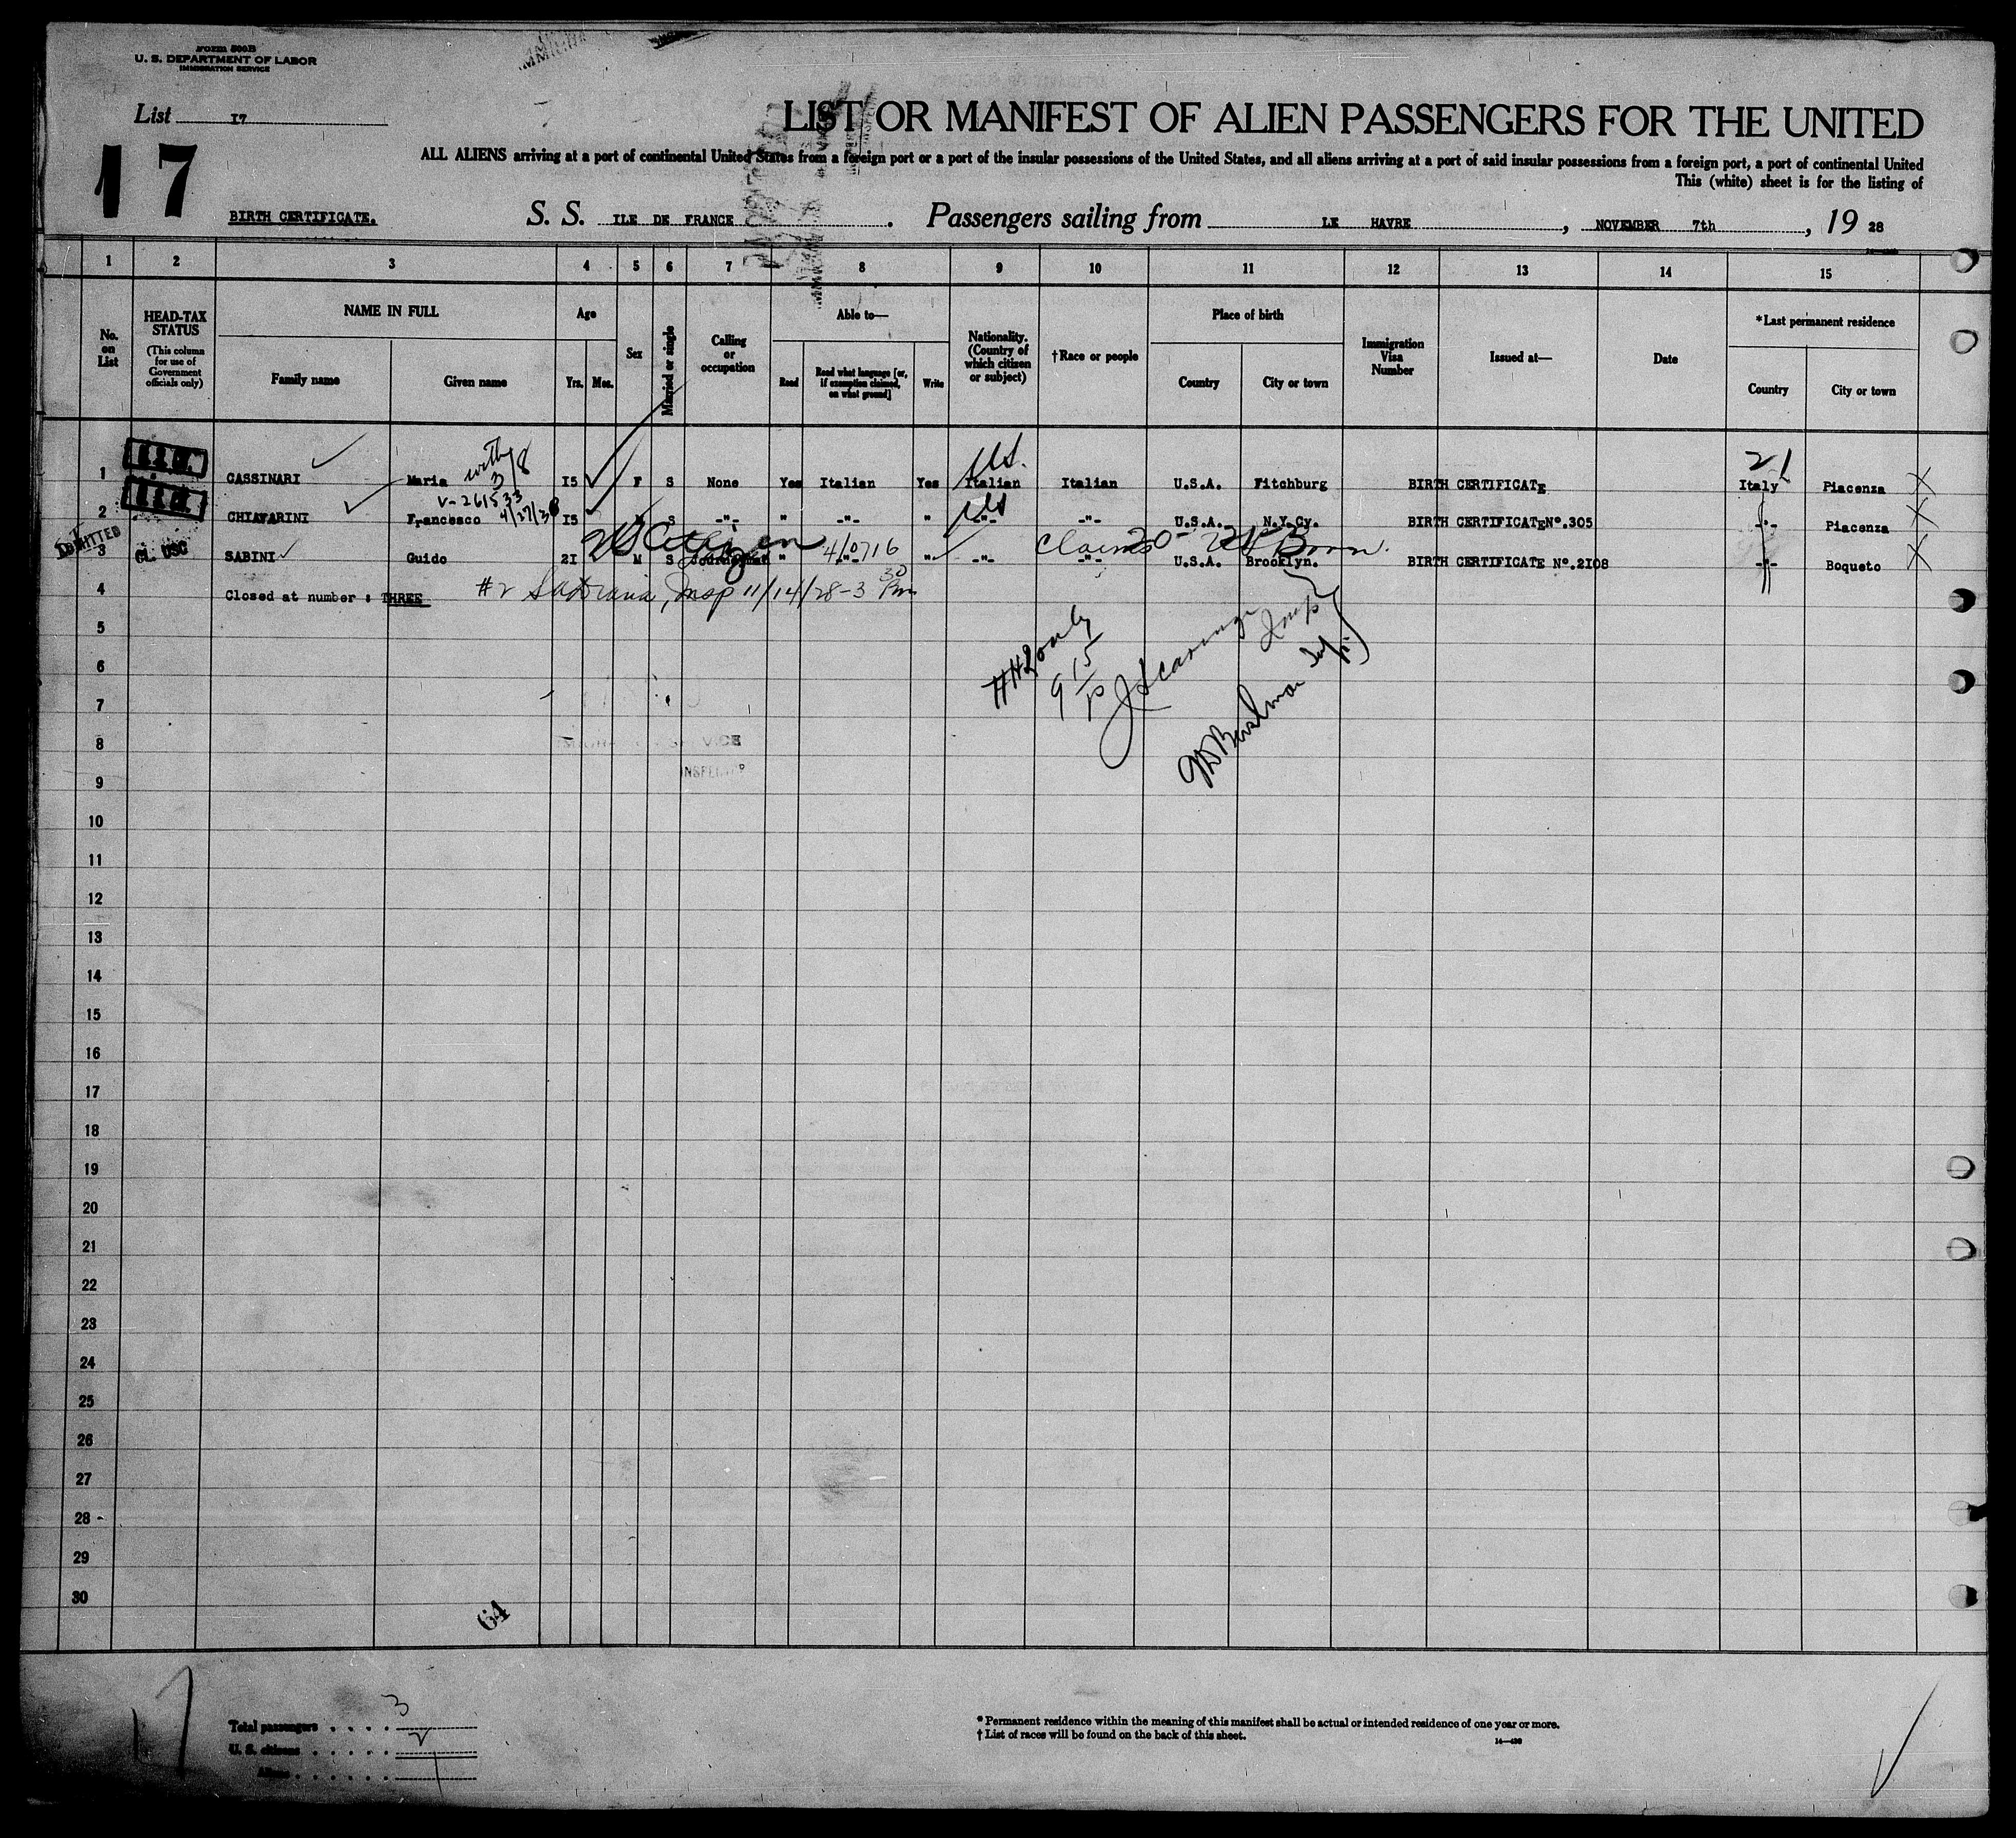 Form 500B
U. S. DEPARTMENT OF LABOR
IMMIGRATION SERVICE
List 17
17
LIST OR MANIFEST OF ALIEN PASSENGERS FOR THE UNITED
ALL ALIENS arriving at a port of continental United States from a foreign port or a port of the insular possessions of the United States, and all aliens arriving at a port of said insular possessions from a foreign port, a port of continental United
This (white) sheet is for the listing of
BIRTH CERTIFICATE. S. S. ILE DE FRANCE . Passengers sailing from LE HAVRE , NOVEMBER 7th , 19 28
1 2 3 4 5 6 7 8 9 10 11 12 13 14 15
No. on List
HEAD-TAX STATUS (This column for use of Government officials only)
NAME IN FULL
Family name Given name
Age
Yrs. Mos.
Sex
Married or single
Calling or occupation
Able to—
Read Read what language [or, if exemption claimed, on what ground] Write
Nationality. (Country of which citizen or subject)
†Race or people
Place of birth
Country City or town
Immigration Visa Number
Issued at—
Date
*Last permanent residence
Country City or town
with 3/8 US. 21
1 CASSINARI Maria I5 F S None Yes Italian Yes Italian Italian U.S.A. Fitchburg BIRTH CERTIFICATE Italy Piacenza X
V-261533 4/27/38 US
2 CHIAFARINI Francesco I5 M S -"- " -"- " -"- -"- U.S.A. N.Y.Cy. BIRTH CERTIFICATE N°.305 -"- Piacenza X
ADMITTED US Citizen 4/0716 Claims US Born.
3 CL. USC SABINI Guido 2I M S Journeyman " -"- " -"- -"- U.S.A. Brooklyn. BIRTH CERTIFICATE N°.2I08 -"- Boqueto X
4 Closed at number : THREE #2 Insp 11/14/28-3 30 Pm
5
6
7
8
9
10
11
12
13
14
15
16
17
18
19
20
21
22
23
24
25
26
27
28
29
30
#1+2 only
9 15
Insp
INSPECTOR
64
17
Total passengers 3
U. S. citizens 2
Aliens 1
* Permanent residence within the meaning of this manifest shall be actual or intended residence of one year or more.
† List of races will be found on the back of this sheet.
14—430